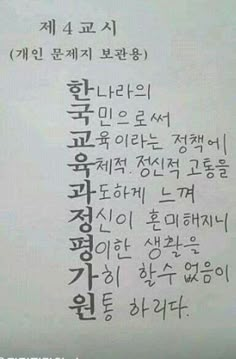 제 4 교시
(개인 문제지 보관용)
한나라의
국민으로써
교육이라는 정책에
육체적. 정신적 고통을
과도하게 느껴
정신이 혼미해지니
평이한 생활을
가히 할수 없음이
원통 하리다.